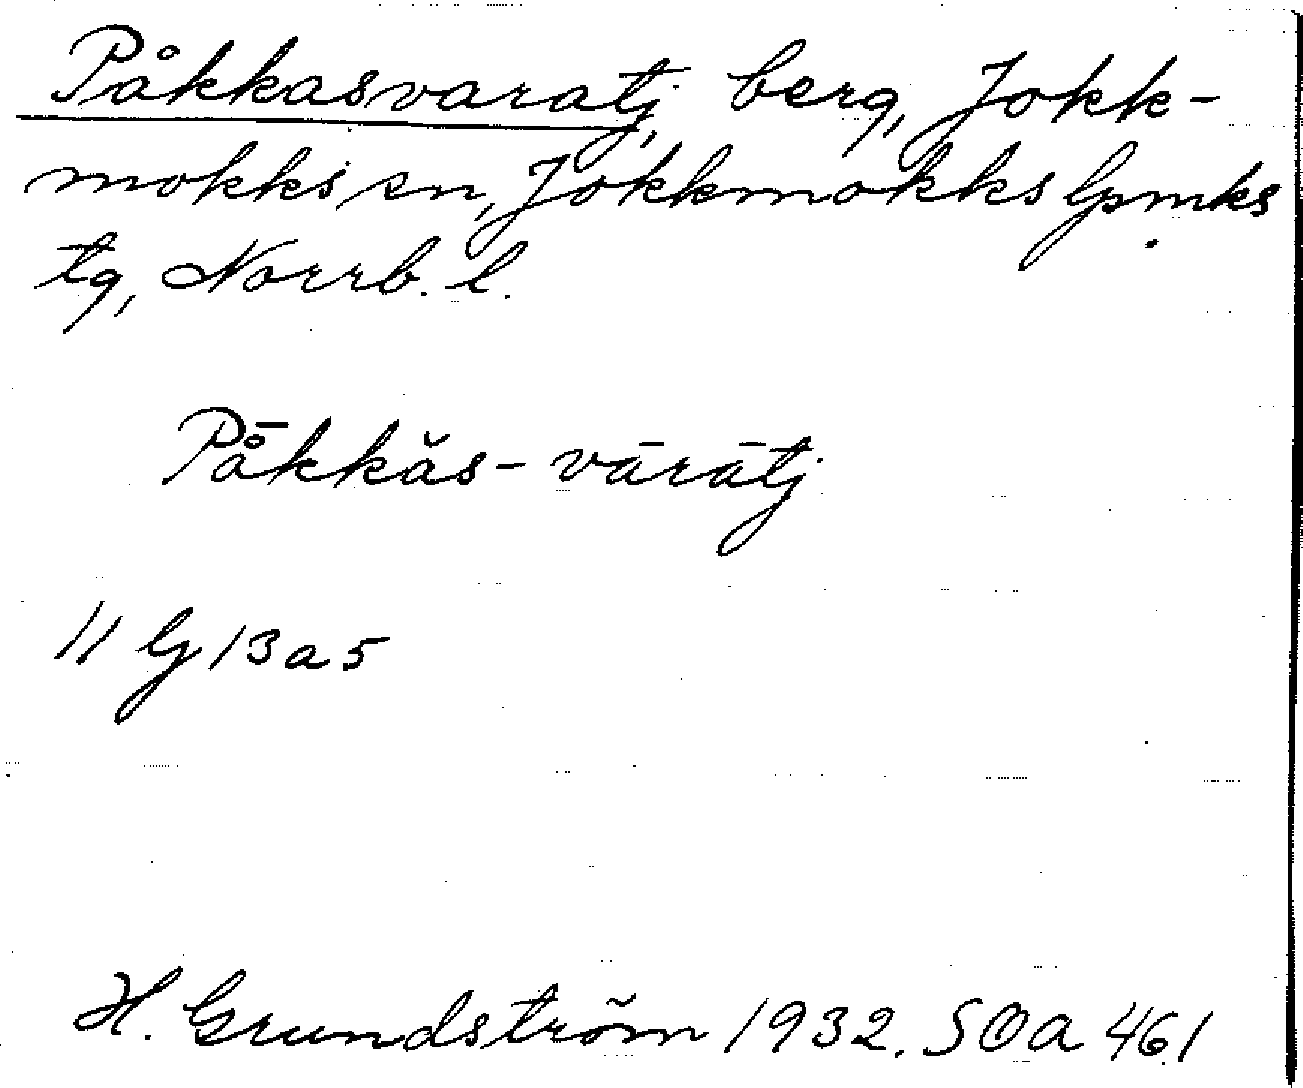 Påkkasvaratj, berg, Jokk-
mokks sn, Jokkmokks lpmks
tg, Norrb. l.
På̄kkăs-vārātj
11 G 13 a 5
H. Grundström 1932. SOA 461